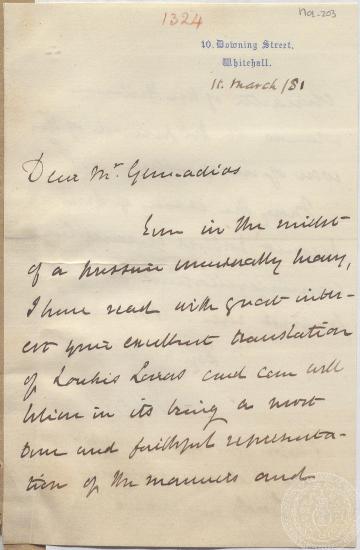 1324
Noe-203
10, Downing Street,
Whitehall.
15. March /81
Dear Mr. Gennadios
Even in the midst
of a pressure unusually heavy,
I have read with great inter-
est your excellent translation
of Loukis Laras and can well
believe in its being a most
true and faithful representa-
tion of the manners and